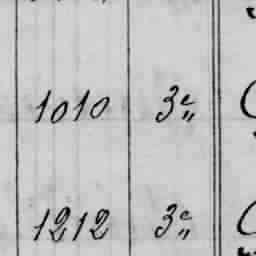 1010 3e„
1212 3e„